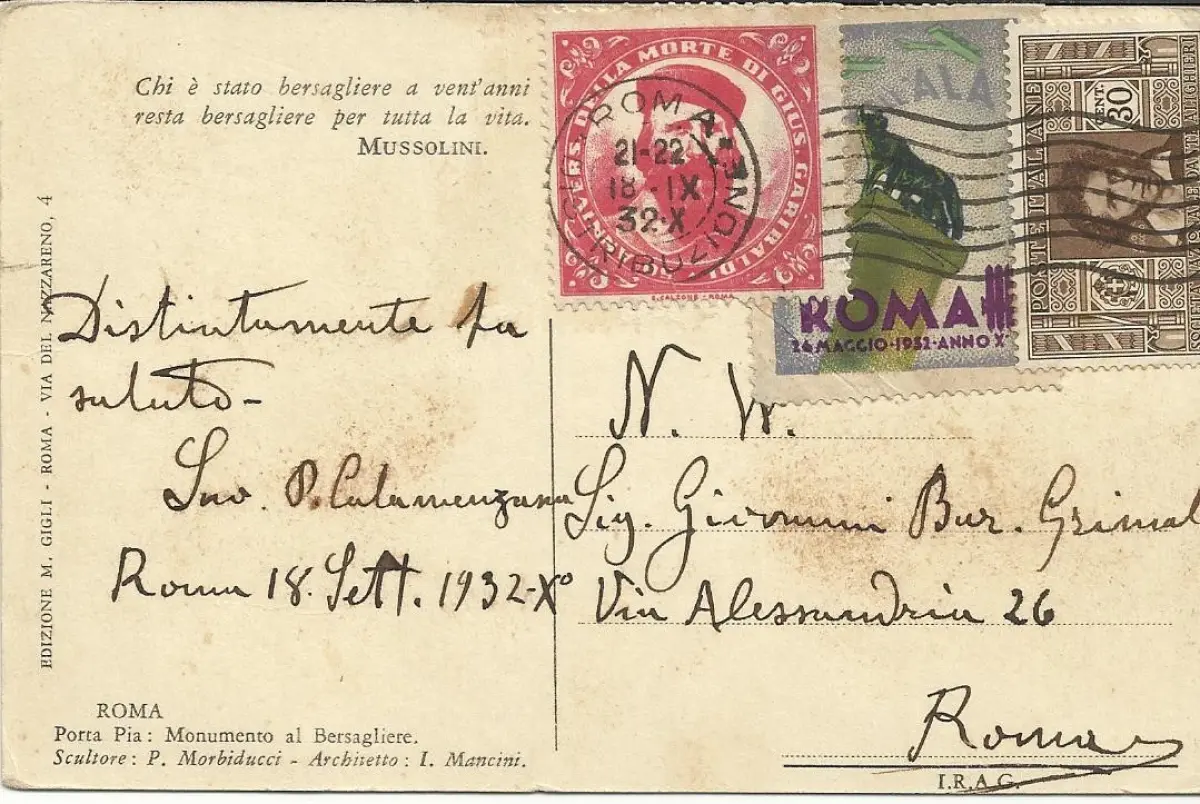 Chi è stato bersagliere a vent'anni
resta bersagliere per tutta la vita.
MUSSOLINI.
EDIZIONE M. GIGLI - ROMA - VIA DEL NAZZARENO, 4
DELLA MORTE DI GIUS. GARIBALDI
E. CALZONE - ROMA
ROMA
21-22
18-IX
32-X
DISTRIBUZIONE
ALA
ROMA
24 MAGGIO · 1932 · ANNO X
POSTE ITALIANE
CENT. 30
Distintamente La
saluto -
Suo P. Calamenzana
Roma 18 Sett. 1932-X°
N. H.
Sig. Giovanni Bar. Grimal
Via Alessandria 26
Roma
ROMA
Porta Pia: Monumento al Bersagliere.
Scultore: P. Morbiducci - Architetto: I. Mancini.
I.R.A.G.